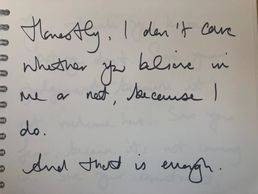 Honestly, I don't care
whether you believe in
me or not, because I
do.
And that is enough.